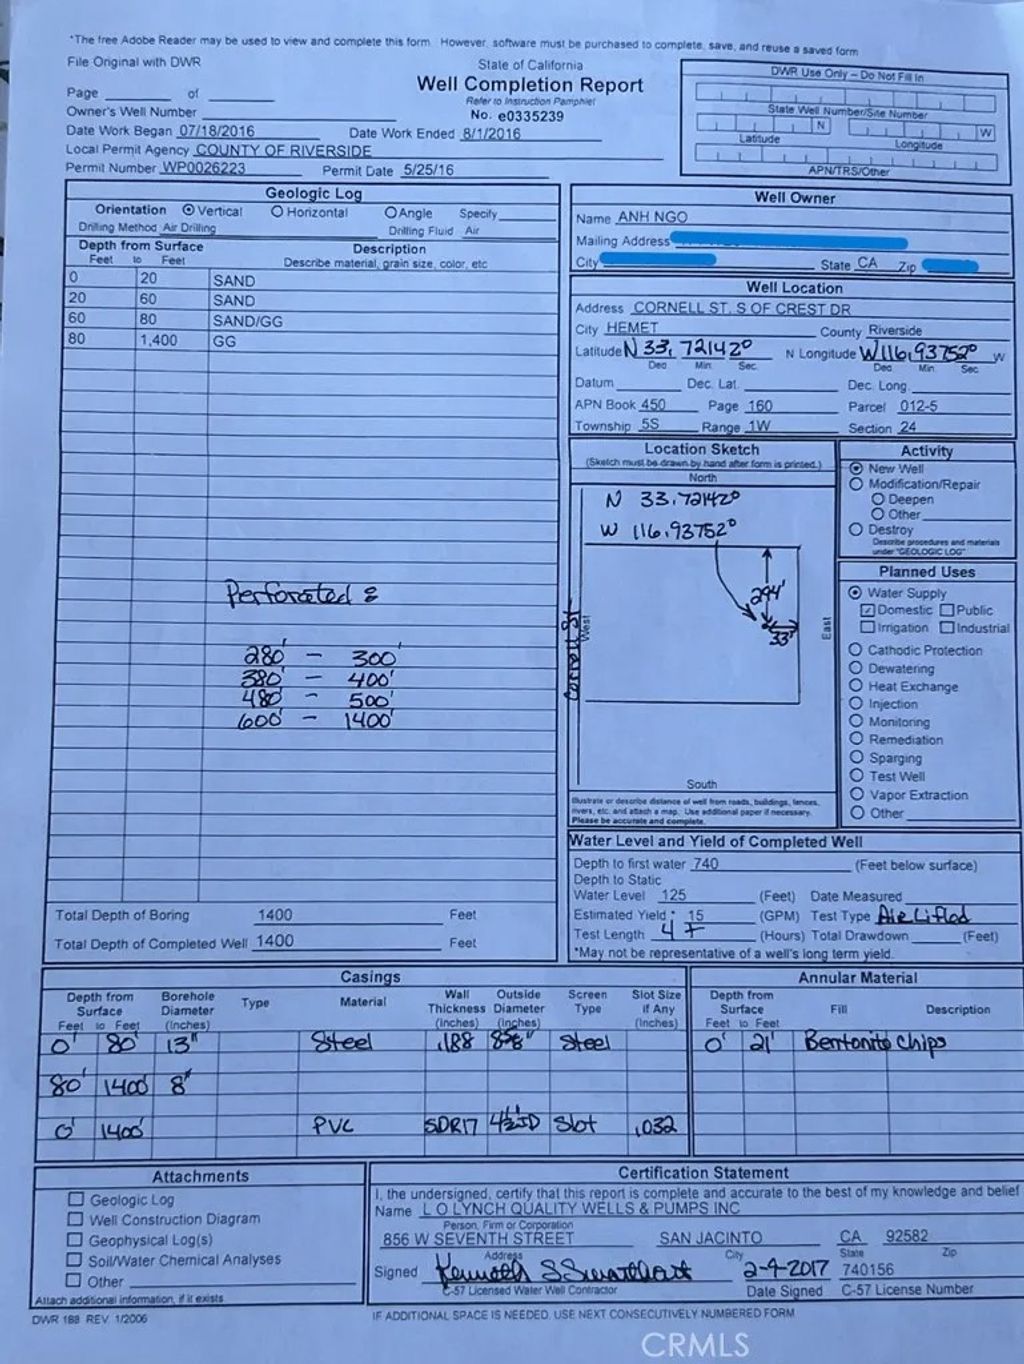 *The free Adobe Reader may be used to view and complete this form. However, software must be purchased to complete, save, and reuse a saved form
File Original with DWR
State of California
Well Completion Report
Refer to Instruction Pamphlet
No. e0335239
Page of
Owner's Well Number
Date Work Began 07/18/2016 Date Work Ended 8/1/2016
Local Permit Agency COUNTY OF RIVERSIDE
Permit Number WP0026223 Permit Date 5/25/16
DWR Use Only – Do Not Fill In
State Well Number/Site Number
N W
Latitude Longitude
APN/TRS/Other
Geologic Log
Orientation Vertical Horizontal Angle Specify
Drilling Method Air Drilling Drilling Fluid Air
Depth from Surface Description
Feet to Feet Describe material, grain size, color, etc
0 20 SAND
20 60 SAND
60 80 SAND/GG
80 1,400 GG
Perforated :
280' – 300'
380' – 400'
480' – 500'
600' – 1400'
Total Depth of Boring 1400 Feet
Total Depth of Completed Well 1400 Feet
Well Owner
Name ANH NGO
Mailing Address
City State CA Zip
Well Location
Address CORNELL ST. S OF CREST DR
City HEMET County Riverside
Latitude N 33.72142° N Longitude W116.93752° W
Deg. Min. Sec. Deg. Min. Sec.
Datum Dec. Lat. Dec. Long.
APN Book 450 Page 160 Parcel 012-5
Township 5S Range 1W Section 24
Location Sketch
(Sketch must be drawn by hand after form is printed.)
North
N 33.72142°
W 116.93752°
294'
33'
Cornell St
West
East
South
Illustrate or describe distance of well from roads, buildings, fences,
rivers, etc. and attach a map. Use additional paper if necessary.
Please be accurate and complete.
Activity
New Well
Modification/Repair
Deepen
Other
Destroy
Describe procedures and materials
under "GEOLOGIC LOG"
Planned Uses
Water Supply
Domestic Public
Irrigation Industrial
Cathodic Protection
Dewatering
Heat Exchange
Injection
Monitoring
Remediation
Sparging
Test Well
Vapor Extraction
Other
Water Level and Yield of Completed Well
Depth to first water 740 (Feet below surface)
Depth to Static
Water Level 125 (Feet) Date Measured
Estimated Yield * 15 (GPM) Test Type Air Lifted
Test Length 4+ (Hours) Total Drawdown (Feet)
*May not be representative of a well's long term yield.
Casings
Depth from Surface Feet to Feet Borehole Diameter (Inches) Type Material Wall Thickness (Inches) Outside Diameter (Inches) Screen Type Slot Size if Any (Inches)
0' 80' 13" Steel .188 8 5/8" Steel
80' 1400' 8"
0' 1400' PVC SDR17 4½ Slot .032
Annular Material
Depth from Surface Feet to Feet Fill Description
0' 21' Bentonite Chips
Attachments
Geologic Log
Well Construction Diagram
Geophysical Log(s)
Soil/Water Chemical Analyses
Other
Attach additional information, if it exists.
Certification Statement
I, the undersigned, certify that this report is complete and accurate to the best of my knowledge and belief
Name L O LYNCH QUALITY WELLS & PUMPS INC
Person, Firm or Corporation
856 W SEVENTH STREET SAN JACINTO CA 92582
Address City State Zip
Signed Kenneth S Swarthout 2-4-2017 740156
C-57 Licensed Water Well Contractor Date Signed C-57 License Number
DWR 188 REV. 1/2006
IF ADDITIONAL SPACE IS NEEDED, USE NEXT CONSECUTIVELY NUMBERED FORM
CRMLS